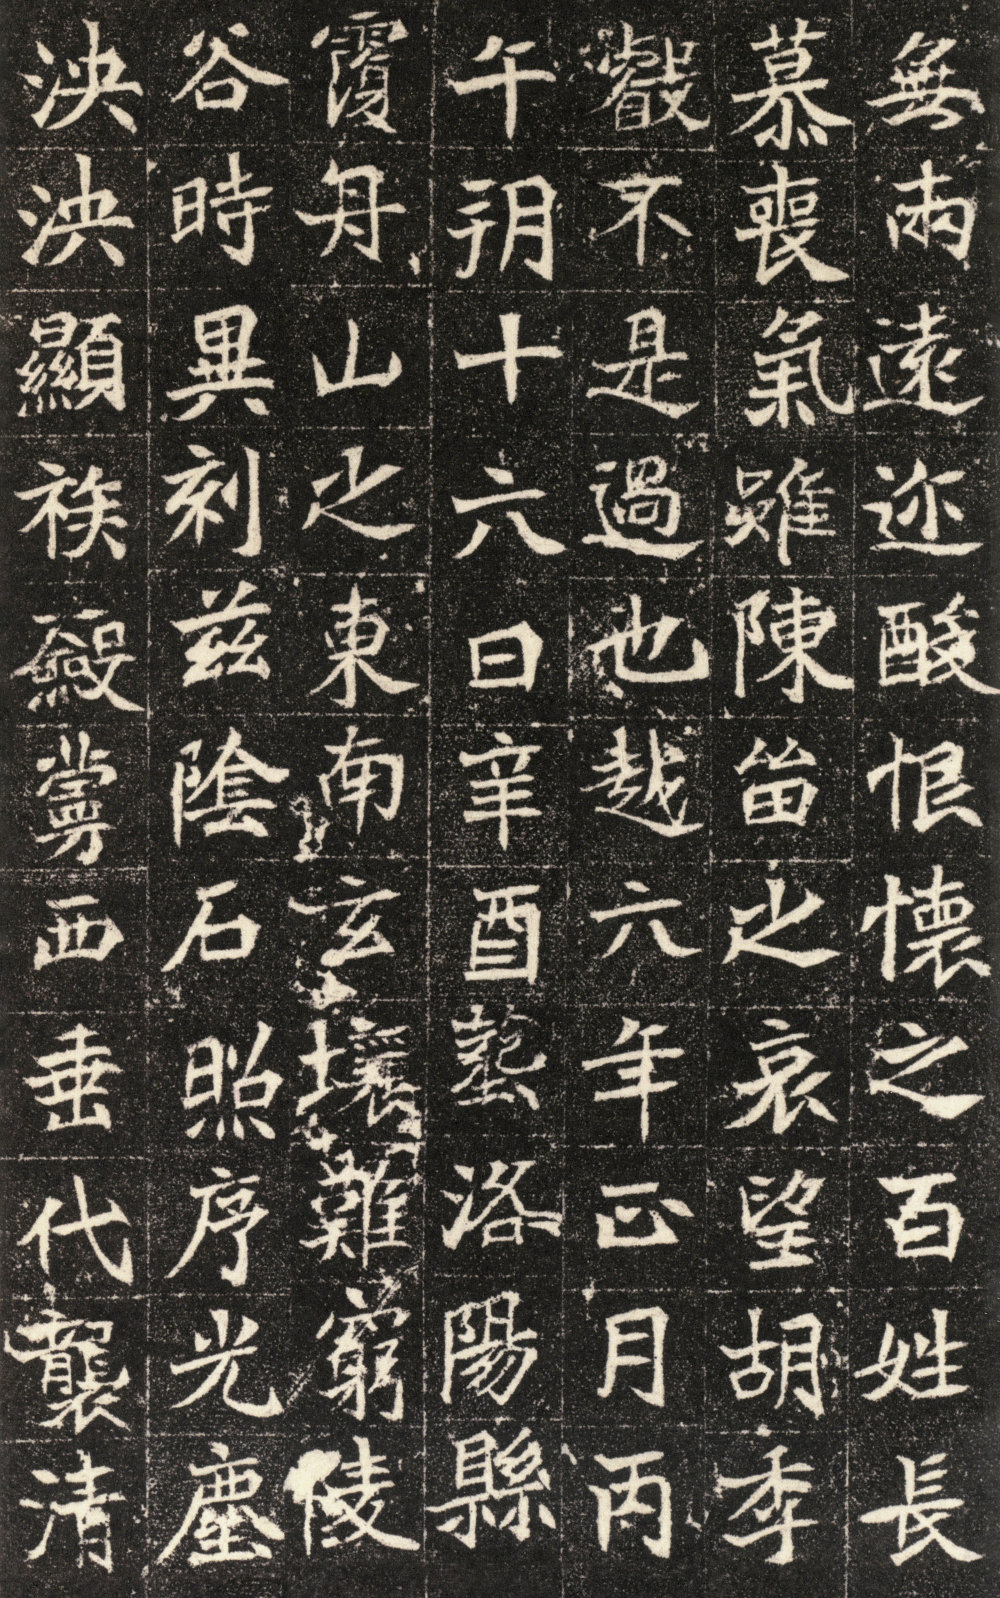 無兩遠迩酸恨懷之百姓長
慕喪氣雖陳留之哀望胡季
叡不是過也越六年正月丙
午朔十六日辛酉塟洛陽縣
覆舟山之東南玄壤難窮陵
谷時異刻茲陰石照序光塵
泱泱顯族西垂代襲清